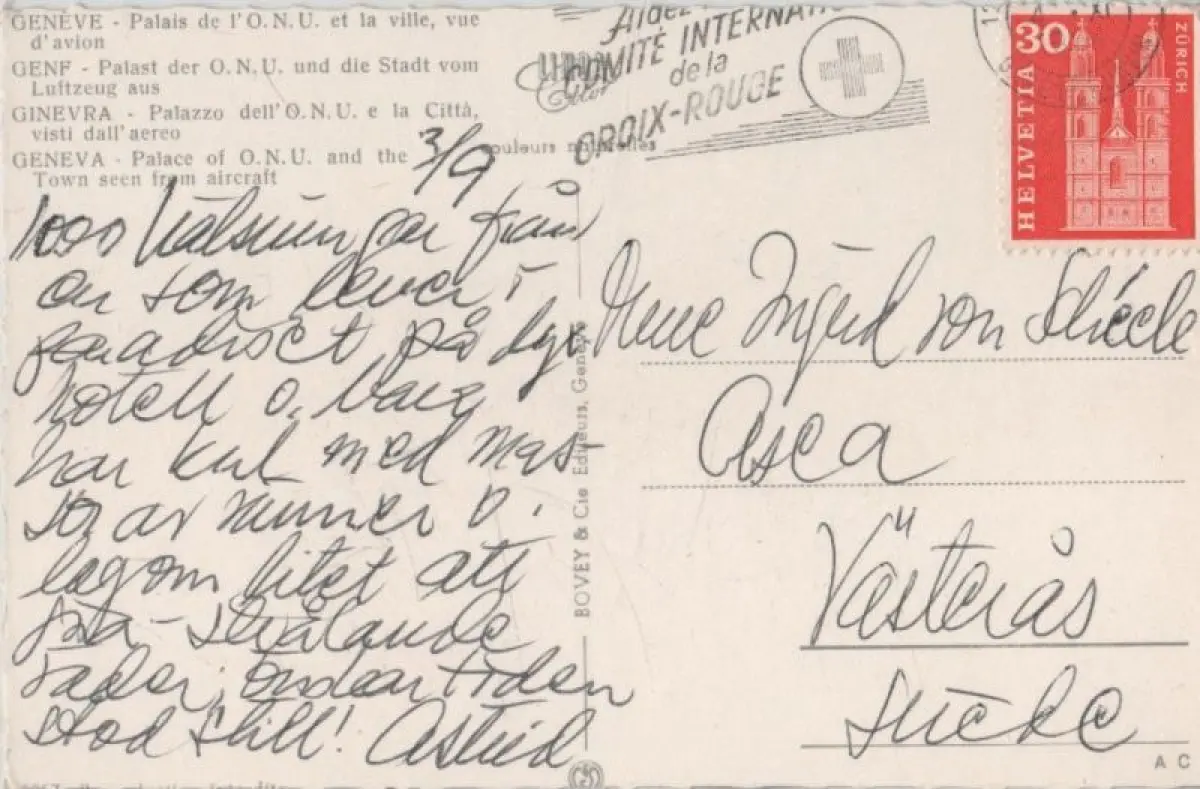 GENÈVE - Palais de l'O.N.U. et la ville, vue
d'avion
GENF - Palast der O.N.U. und die Stadt vom
Luftzeug aus
GINEVRA - Palazzo dell'O.N.U. e la Città,
visti dall'aereo
GENEVA - Palace of O.N.U. and the
Town seen from aircraft
couleurs naturelles
COMITÉ INTERNATIO
de la
CROIX-ROUGE
30
HELVETIA
ZÜRICH
3/9
1000 hälsningar från
en som lever i
paradiset på
hotell o. bara
har kul med mas-
sor av o.
lagom litet att
göra - strålande
väder, önskar tiden
stod still! Astrid
BOVEY & Cie Editeurs, Genève
Ingrid von
Asea
Västerås
Suède
A C